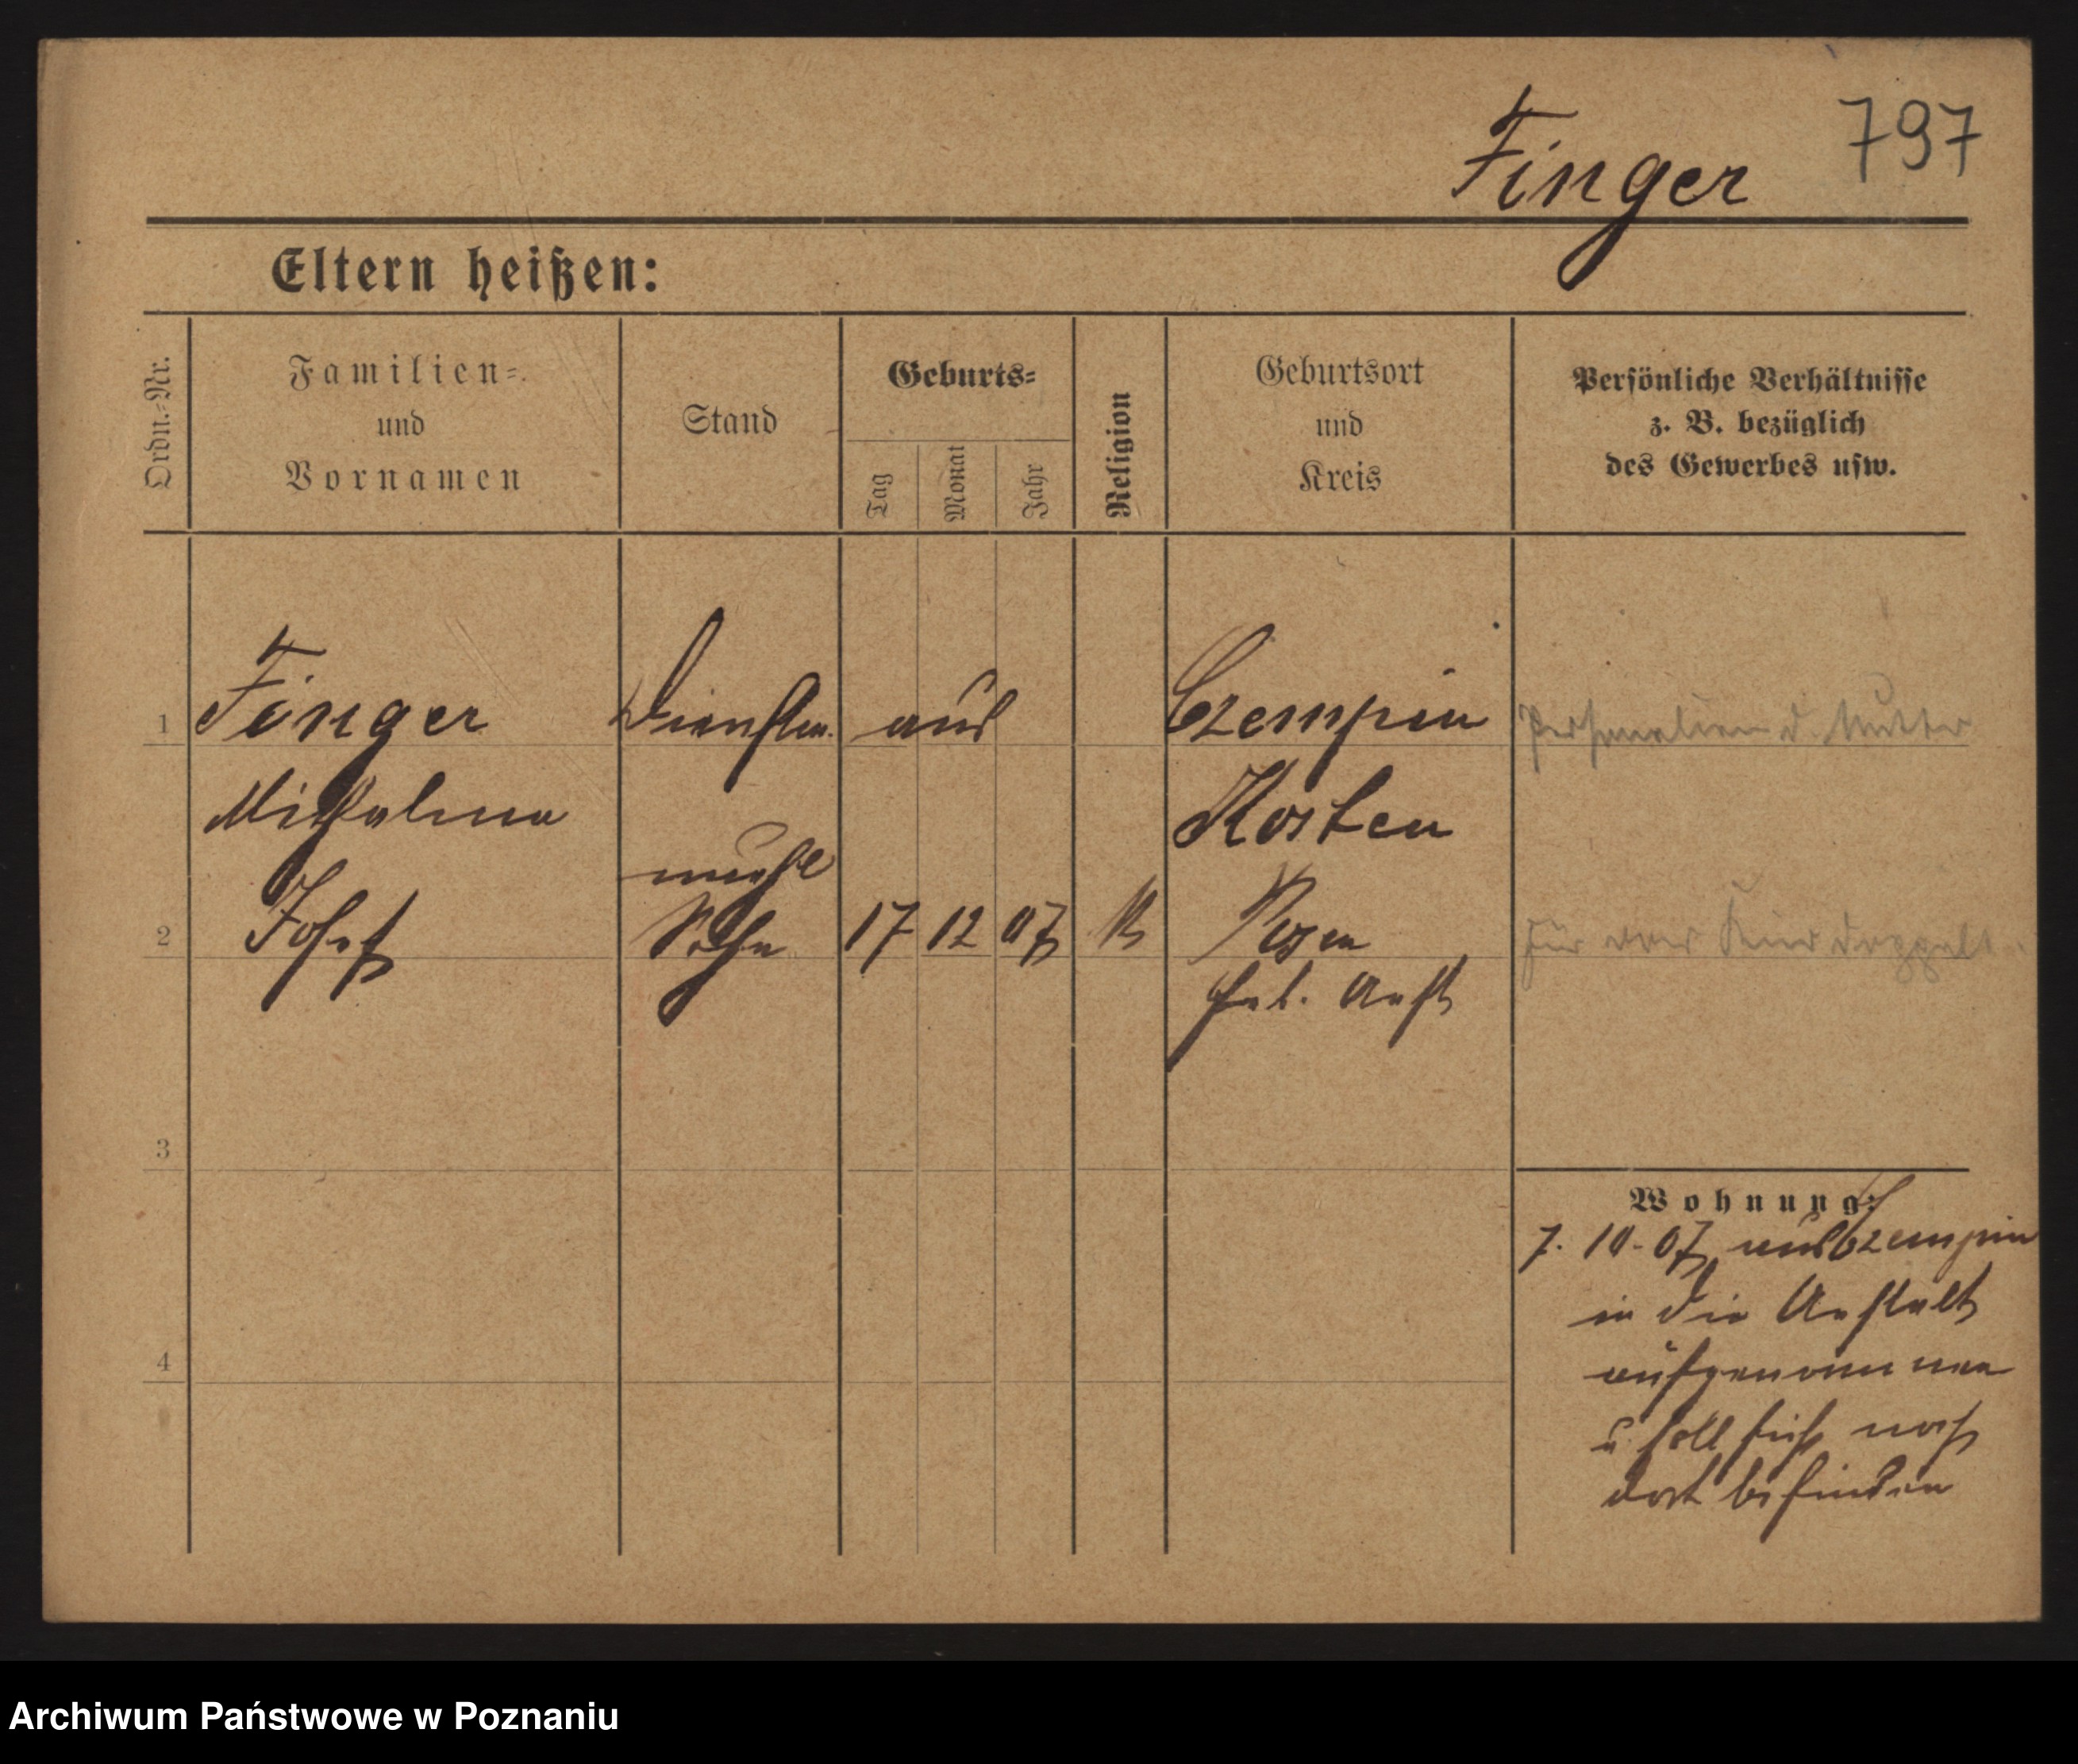 797
Finger
Eltern heißen:
Ordn.-Nr.
Familien-
und
Vornamen
Stand
Geburts-
Tag
Monat
Jahr
Religion
Geburtsort
und
Kreis
Persönliche Verhältnisse
z. B. bezüglich
des Gewerbes usw.
1
Finger
aus
Czempin
Personalien d. Mutter
Kosten
unehl
2
Josef
Sohn
17
12
07
K
Posen
für das Kind doppelt
Anst
3
Wohnung:
7. 10. 07 aus Czempin
in die Anstalt
aufgenommen
4
u. soll sich noch
dort befinden
Archiwum Państwowe w Poznaniu